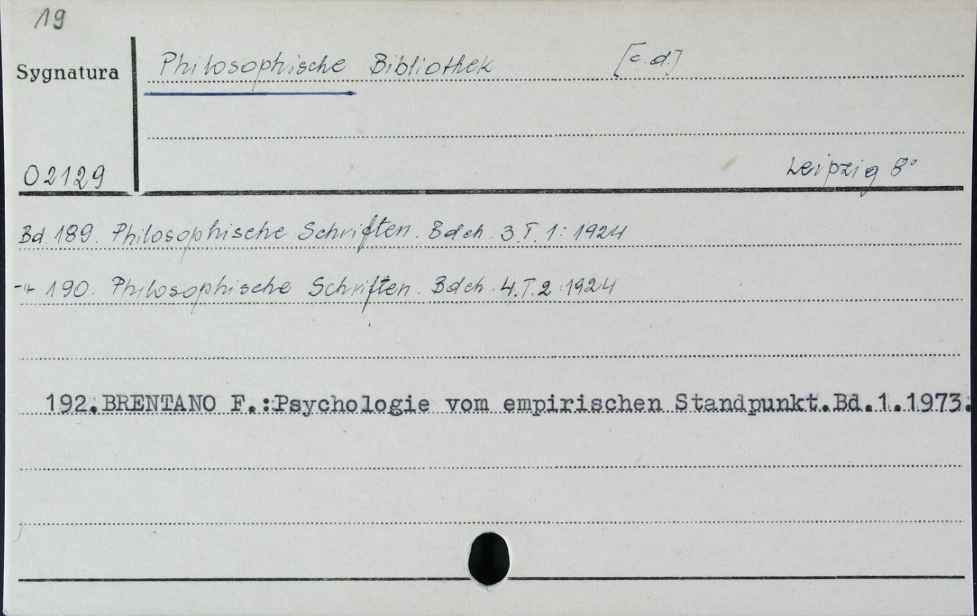 19
Sygnatura
Philosophische Bibliothek [c.d.]
02129
Leipzig 8°
Bd 189. Philosophische Schriften. Bdch. 3.T.1: 1924
-"- 190. Philosophische Schriften. Bdch. 4.T.2 1924
192.BRENTANO F.:Psychologie vom empirischen Standpunkt.Bd.1.1973.